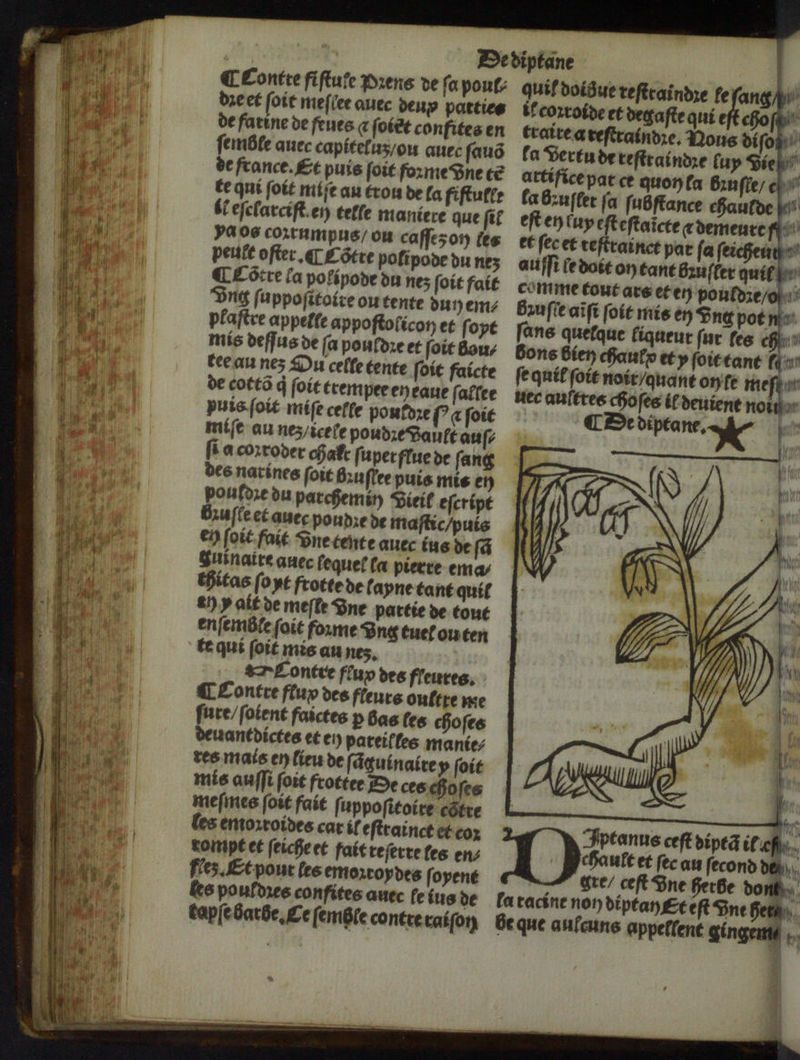 De diptane
¶ Contre fistule Prens de sa poul-
dre et soit meslee auec deux parties
de farine de feues ⁊ soiẽt confites en
semble auec capitelus/ou auec sauõ
de france. Et puis soit forme vne tẽ
te qui soit mise au trou de la fistulle
il esclarcist. en telle maniere que sil
ya os corrumpus/ ou cassez on les
peult oster. ¶ Cõtre polipode du nez
¶ Cõtre la polipode du nez soit fait
vng suppositoire ou tente dun em-
plastre appelle appostolicon et soyt
mis dessus de sa pouldre et soit bou-
tee au nez Ou celle tente soit faicte
de cottõ q̃ soit trempee en eaue sallee
puis soit mise celle pouldre ⁊ soit
mise au nez/icele poudre vault aus-
si a corroder chair superflue de sang
des narines soit bruslee puis mis en
pouldre du parchemin vieil escript
brusle et auec poudre de mastic/puis
en soit fait vne tente auec ius de sã
guinaire auec lequel la pierre ema-
thitas soyt frotte de layne tant quil
en y ait de mesle vne partie de tout
ensemble soit forme vng tuel ou ten
te qui soit mis au nez.
☞ Contre flux des fleures.
¶ Contre flux des fleurs oultre me
sure/soient faictes p bas les choses
deuantdictes et en pareilles manie-
res mais en lieu de sãguinaire y soit
mis aussi soit frottee De ces choses
mesmes soit fait suppositoire cõtre
les emorroides car il estrainct et cor
rompt et seiche et fait reserre les en-
flez. Et pour les emorroydes soyent
les pouldres confites auec le ius de
tapse barbe. Ce semble contre raison
quil doibue restraindre le sang
il corroide et degaste qui est
traire a restraindre. Nous
la vertu de restraindre luy
artifice par ce quon la brusle/
la brusler sa substance chaulde
est en luy est estaicte ⁊ demeure
et sec et restrainct par sa
aussi le doit on tant brusler quil
comme tout ars et en pouldre/
brusle aĩsi soit mis en vng pot
sans quelque liqueur sur les
bons bien chaulx et y soit tant
se quil soit noir/quant on le
uec aultres choses il deuient
¶ De diptane.
DIptanus cest diptã il
chault et sec au second
gre/ cest vne herbe
la racine non diptan Et est vne
be que aulcuns appellent